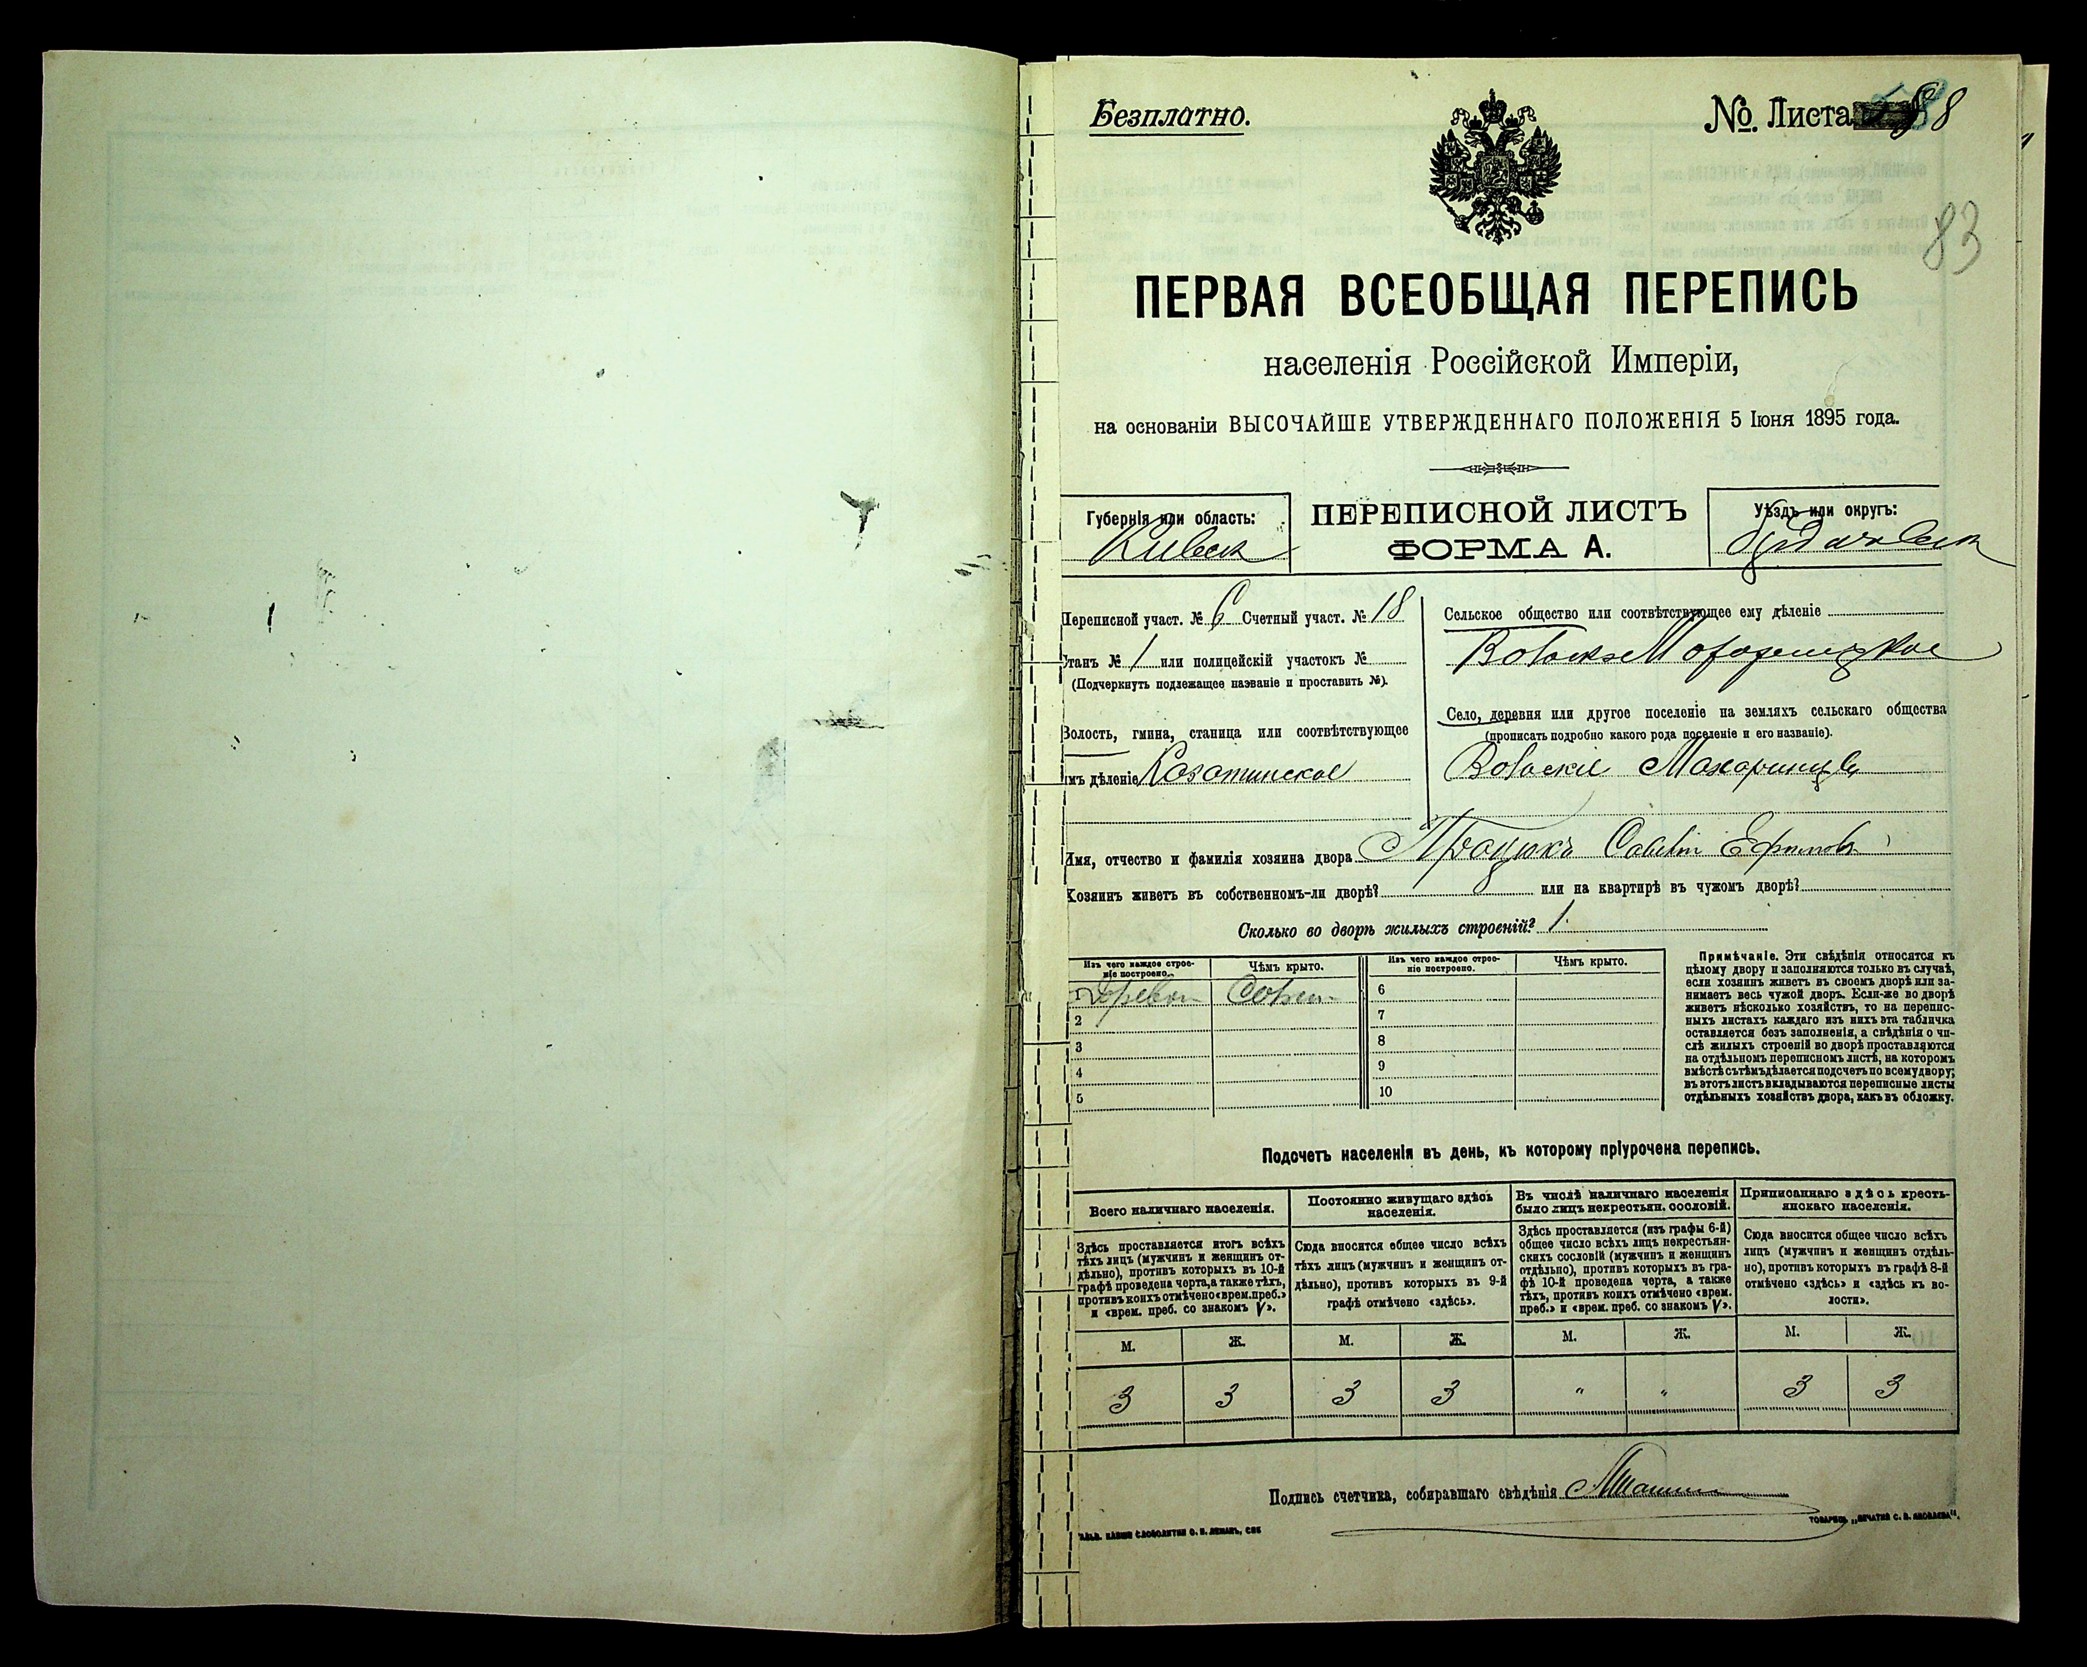 Безплатно.
№ Листа 88
83
ПЕРВАЯ ВСЕОБЩАЯ ПЕРЕПИСЬ
населенія Россійской Имперіи,
на основаніи ВЫСОЧАЙШЕ УТВЕРЖДЕННАГО ПОЛОЖЕНІЯ 5 Іюня 1895 года.
Губернія или область:
Киевск
ПЕРЕПИСНОЙ ЛИСТЪ
ФОРМА А.
Уѣздъ или округъ:
Переписной участ. № 6 Счетный участ. № 18
Станъ № 1 или полицейскій участокъ №
(Подчеркнуть подлежащее названіе и проставить №).
Волость, гмина, станица или соотвѣтствующее
имъ дѣленіе Козотинское
Сельское общество или соотвѣтствующее ему дѣленіе
Село, деревня или другое поселеніе на земляхъ сельскаго общества
(прописать подробно какого рода поселеніе и его названіе).
Махаринцы
Имя, отчество и фамилія хозяина двора Процюкъ Савелій Ефимовъ
Хозяинъ живетъ въ собственномъ-ли дворѣ? или на квартирѣ въ чужомъ дворѣ?
Сколько во дворѣ жилыхъ строеній? 1.
Изъ чего каждое строе-
ніе построено.
Чѣмъ крыто.
Изъ чего каждое строе-
ніе построено.
Чѣмъ крыто.
Дерев Солом
2
3
4
5
6
7
8
9
10
Примѣчаніе. Эти свѣдѣнія относятся къ
цѣлому двору и заполняются только въ случаѣ,
если хозяинъ живетъ въ своемъ дворѣ или за-
нимаетъ весь чужой дворъ. Если-же во дворѣ
живетъ нѣсколько хозяйствъ, то на перепис-
ныхъ листахъ каждаго изъ нихъ эта табличка
оставляется безъ заполненія, а свѣдѣнія о чи-
слѣ жилыхъ строеній во дворѣ проставляются
на отдѣльномъ переписномъ листѣ, на которомъ
вмѣстѣ съ тѣмъ дѣлается подсчетъ по всему двору;
въ этотъ листъ вкладываются переписные листы
отдѣльныхъ хозяйствъ двора, какъ въ обложку.
Подсчетъ населенія въ день, къ которому пріурочена перепись.
Всего наличнаго населенія.
Постоянно живущаго здѣсь
населенія.
Въ числѣ наличнаго населенія
было лицъ некрестьян. сословій.
Приписаннаго здѣсь кресть-
янскаго населенія.
Здѣсь проставляется итогъ всѣхъ
тѣхъ лицъ (мужчинъ и женщинъ от-
дѣльно), противъ которыхъ въ 10-й
графѣ проведена черта, а также тѣхъ,
противъ коихъ отмѣчено «врем. преб.»
и «врем. преб. со знакомъ V».
Сюда вносится общее число всѣхъ
тѣхъ лицъ (мужчинъ и женщинъ от-
дѣльно), противъ которыхъ въ 9-й
графѣ отмѣчено «здѣсь».
Здѣсь проставляется (изъ графы 6-й)
общее число всѣхъ лицъ некрестьян-
скихъ сословій (мужчинъ и женщинъ
отдѣльно), противъ которыхъ въ гра-
фѣ 10-й проведена черта, а также
тѣхъ, противъ коихъ отмѣчено «врем.
преб.» и «врем. преб. со знакомъ V».
Сюда вносится общее число всѣхъ
лицъ (мужчинъ и женщинъ отдѣль-
но), противъ которыхъ въ графѣ 8-й
отмѣчено «здѣсь» и «здѣсь въ во-
лости».
М. Ж. М. Ж. М. Ж. М. Ж.
3 3 3 3 " " 3 3
Подпись счетчика, собиравшаго свѣдѣнія
СЛОВОЛИТНИ О. И. ЛЕМАНЪ, СПБ
ТОВАРИЩ. „ПЕЧАТНЯ С. П. ЯКОВЛЕВА".